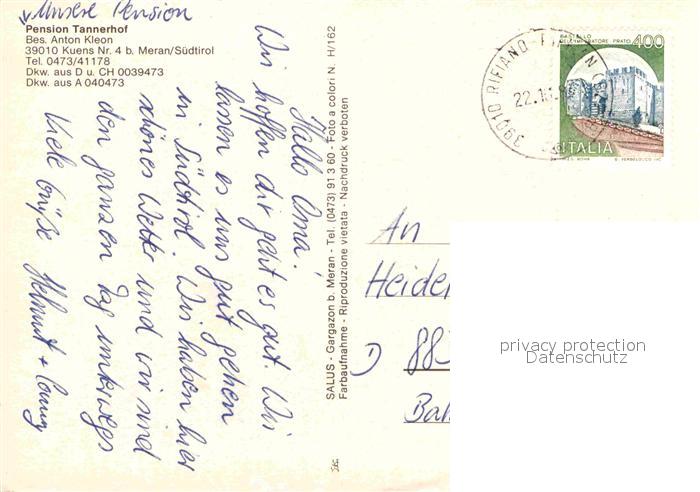 Unsere Pension
Pension Tannerhof
Bes. Anton Kleon
39010 Kuens Nr. 4 b. Meran/Südtirol
Tel. 0473/41178
Dkw. aus D u. CH 0039473
Dkw. aus A 040473
Hallo Oma!
Wir hoffen dir geht es gut. Wir
lassen es uns gut gehen
in Südtirol. Wir haben hier
schönes Wetter und wir sind
den ganzen Tag unterwegs
Viele Grüße Helmut + Conny
SALUS - Gargazon b. Meran - Tel. (0473) 91 3 60 - Foto a colori N. H/162
Farbaufnahme - Riproduzione vietata - Nachdruck verboten
39010 RIFIANO
22.
CASTELLO
DELL'IMPERATORE PRATO
400
ITALIA
An
D
privacy protection
Datenschutz